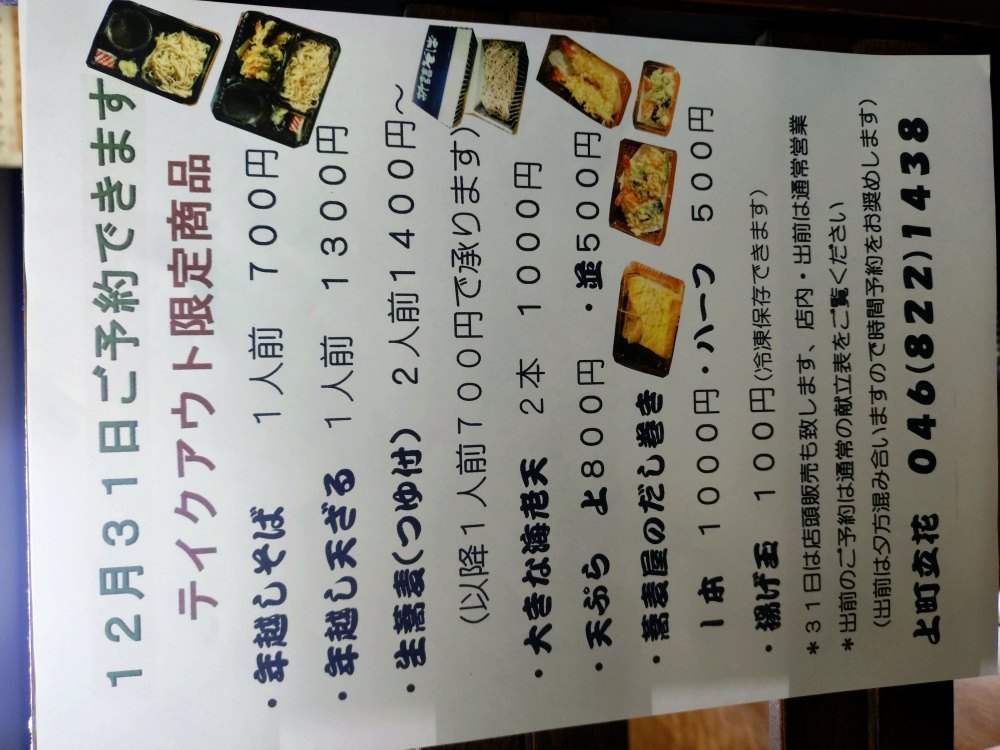 12月31日ご予約できます
テイクアウト限定商品
・年越しそば　1人前　700円
・年越し天ざる　1人前　1300円
・生蕎麦(つゆ付)　2人前1400円～
(以降1人前700円で承ります)
・大きな海老天　2本　1000円
・天ぷら　上800円　・並500円
・蕎麦屋のだし巻き
1本　1000円・ハーフ　500円
・揚げ玉　100円(冷凍保存できます)
*31日は店頭販売も致します、店内・出前は通常営業
*出前のご予約は通常の献立表をご覧ください
(出前は夕方混み合いますので時間予約をお奨めします)
上町立花　046(822)1438